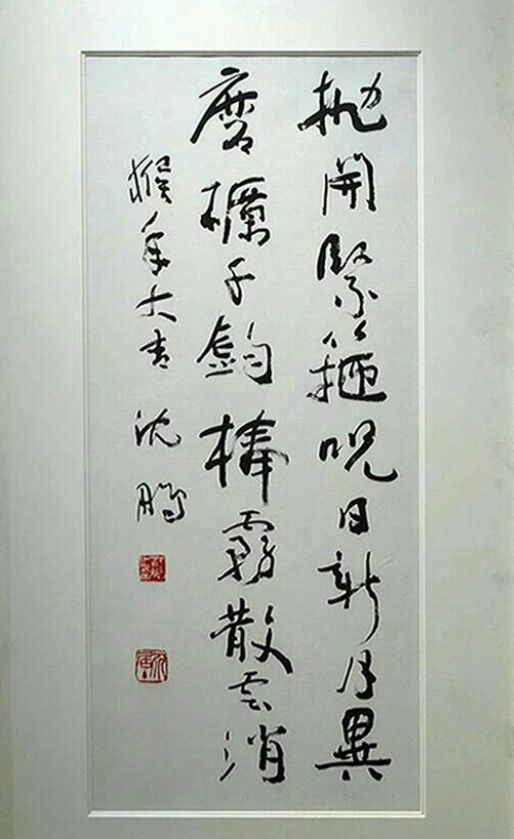 抛開緊箍呪日新月異
磨櫔千鈞棒霧散云消
猴年大吉 沈鵬